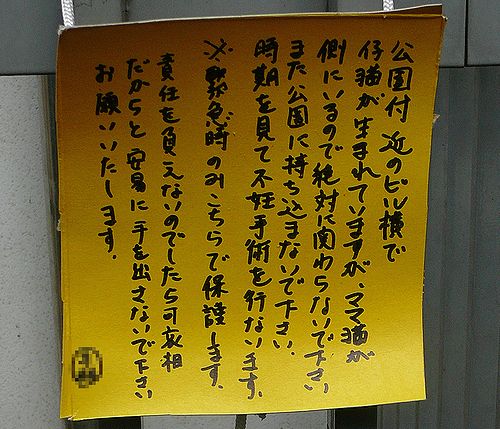 公園付近のビル横で
仔猫が生まれていますが、ママ猫が
側にいるので絶対に関わらないで下さい
また公園に持ち込まないで下さい.
時期を見て不妊手術を行ないます.
※緊急時のみこちらで保護します.
責任を負えないのでしたら可哀相
だからと安易に手を出さないで下さい
お願いいたします.